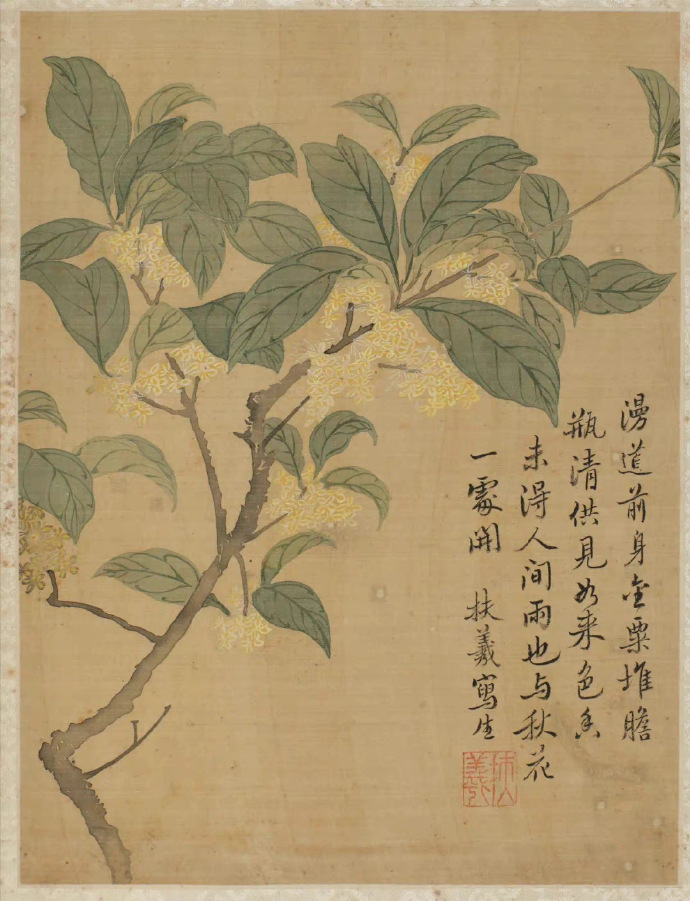 漫道前身金粟堆膽
瓶清供見如来色香
未得人間兩也与秋花
一處開 扶羲寫生